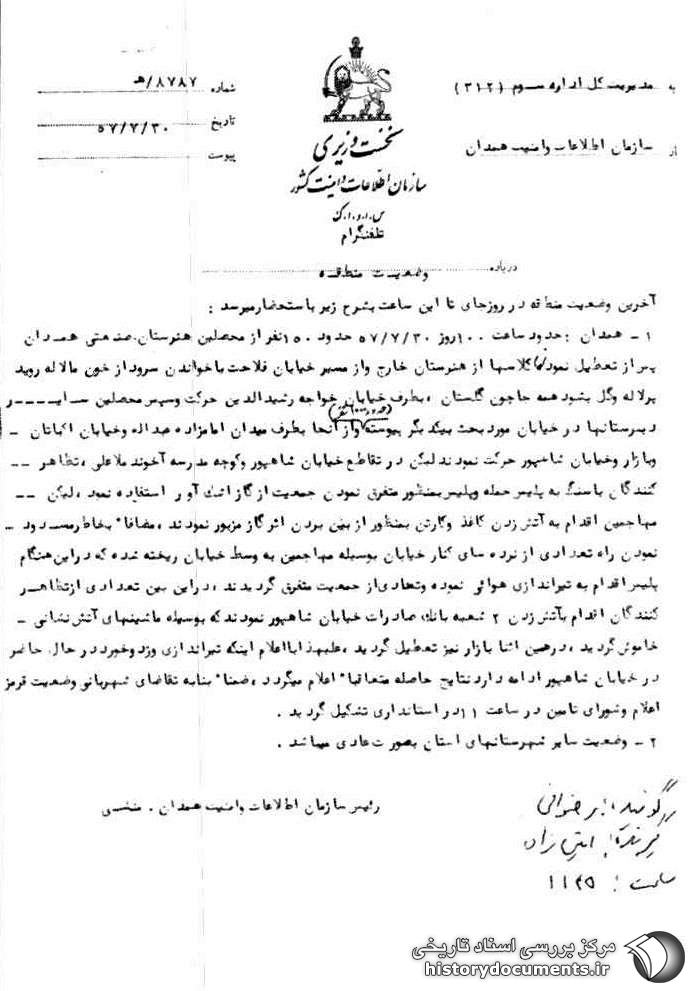 به مدیریت کل اداره سوم (۳۱۲)
از سازمان اطلاعات وامنیت همدان
شماره ۸۷۸۷/هـ
تاریخ ۵۷/۷/۳۰
پیوست
نخست وزیری
سازمان اطلاعات و امنیت کشور
س.ا.و.ا.ک
تلفنگرام
درباره وضعیت منطقه
آخرین وضعیت منطقه در روزجای تا این ساعت بشرح زیر باستحضار میرسد :
۱- همدان : حدود ساعت ۱۰۰۰ روز ۵۷/۷/۳۰ حدود ۱۵۰ نفر از محصلین هنرستان صنعتی همدان
پس از تعطیل نمودن کلاسها از هنرستان خارج واز مسیر خیابان فلاحت باخواندن سرود از خون ما لاله روید
پرلاله وگل بشود همه جا چون گلستان ، بطرف خیابان خواجه رشیدالدین حرکت وسپس محصلین سایر
دبیرستانها در خیابان مورد بحث بیکدیگر پیوسته (حدود نفر) واز آنجا بطرف میدان امامزاده عبداله وخیابان اکباتان -
وبازار وخیابان شاهپور حرکت نمودند لیکن در تقاطع خیابان شاهپور وکوچه مدرسه آخوند ملاعلی ، تظاهر --
کنندگان باسنگ به پلیس حمله وپلیس بمنظور متفرق نمودن جمعیت از گاز اشک آور استفاده نمود ، لیکن --
مهاجمین اقدام به آتش زدن کاغذ وکارتن بمنظور از بین بردن اثر گاز مزبور نمودند ، مضافا" بخاطر مسدود -
نمودن راه تعدادی از نرده های کنار خیابان بوسیله مهاجمین به وسط خیابان ریخته شده که دراین هنگام
پلیس اقدام به تیراندازی هوائی نموده وتعدادی از جمعیت متفرق گردیدند ، دراین بین تعدادی ازتظاهر
کنندگان اقدام بآتش زدن ۲ شعبه بانک صادرات خیابان شاهپور نمودند که بوسیله ماشینهای آتش نشانی -
خاموش گردید ، درهمین اثنا بازار نیز تعطیل گردید ، علیهذا بااعلام اینکه تیراندازی وزد وخورد در حال حاضر
در خیابان شاهپور ادامه دارد نتایج حاصله متعاقبا" اعلام میگردد ، ضمنا" بنابه تقاضای شهربانی وضعیت قرمز
اعلام وشورای تامین در ساعت ۱۱ در استانداری تشکیل گردید .
۲- وضعیت سایر شهرستانهای استان بصورت عادی میباشد .
رئیس سازمان اطلاعات وامنیت همدان .
گوینده : رضوانی
گیرنده :
ساعت : ۱۱۴۵
مرکز بررسی اسناد تاریخی
historydocuments.ir